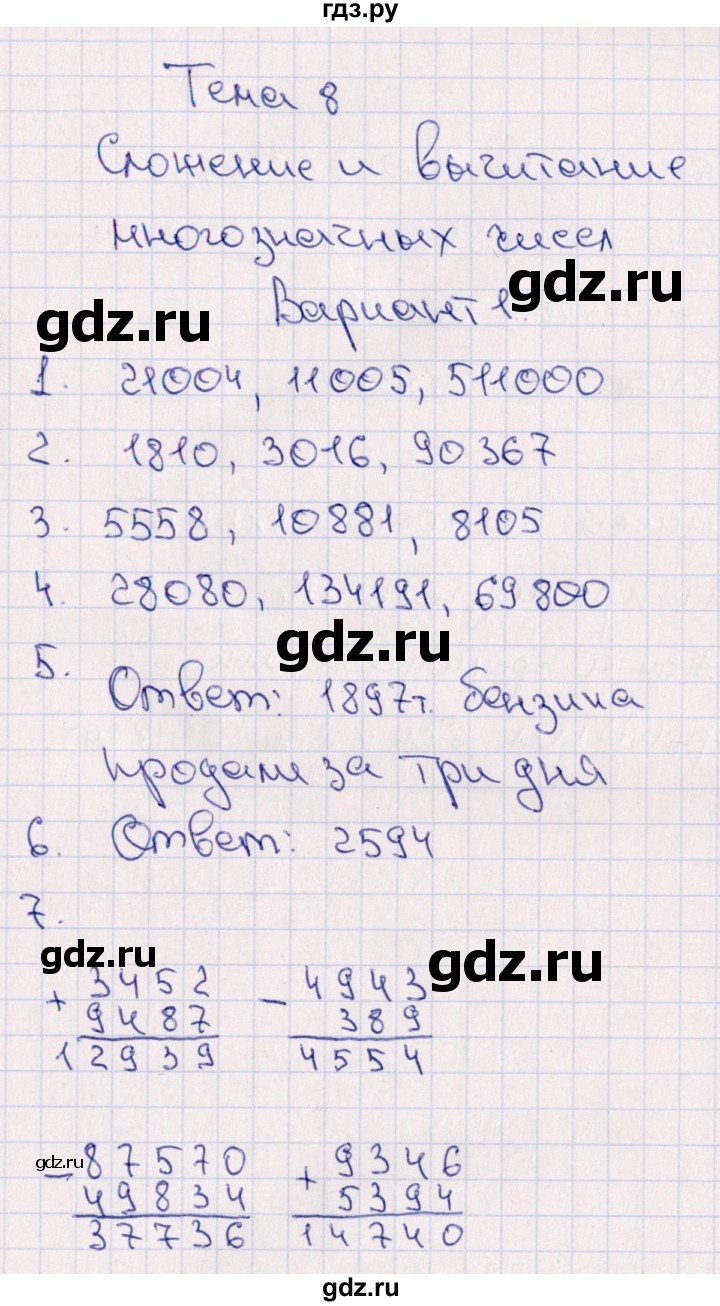 гдз.ру
Тема 8
Сложение и вычитание
многозначных чисел
gdz.ru
Вариант 1.
gdz.ru
1. 21004, 11005, 511000
2. 1810, 3016, 90367
3. 5558, 10881, 8105
4. 28080, 134191, 69800
gdz.ru
5.
Ответ: 1897т. бензина
продали за три дня
6. Ответ: 2594
7.
gdz.ru
gdz.ru
+ 3452
9487
12939
- 4943
389
4554
gdz.ru
- 87570
49834
37736
+ 9346
5394
14740
gdz.ru